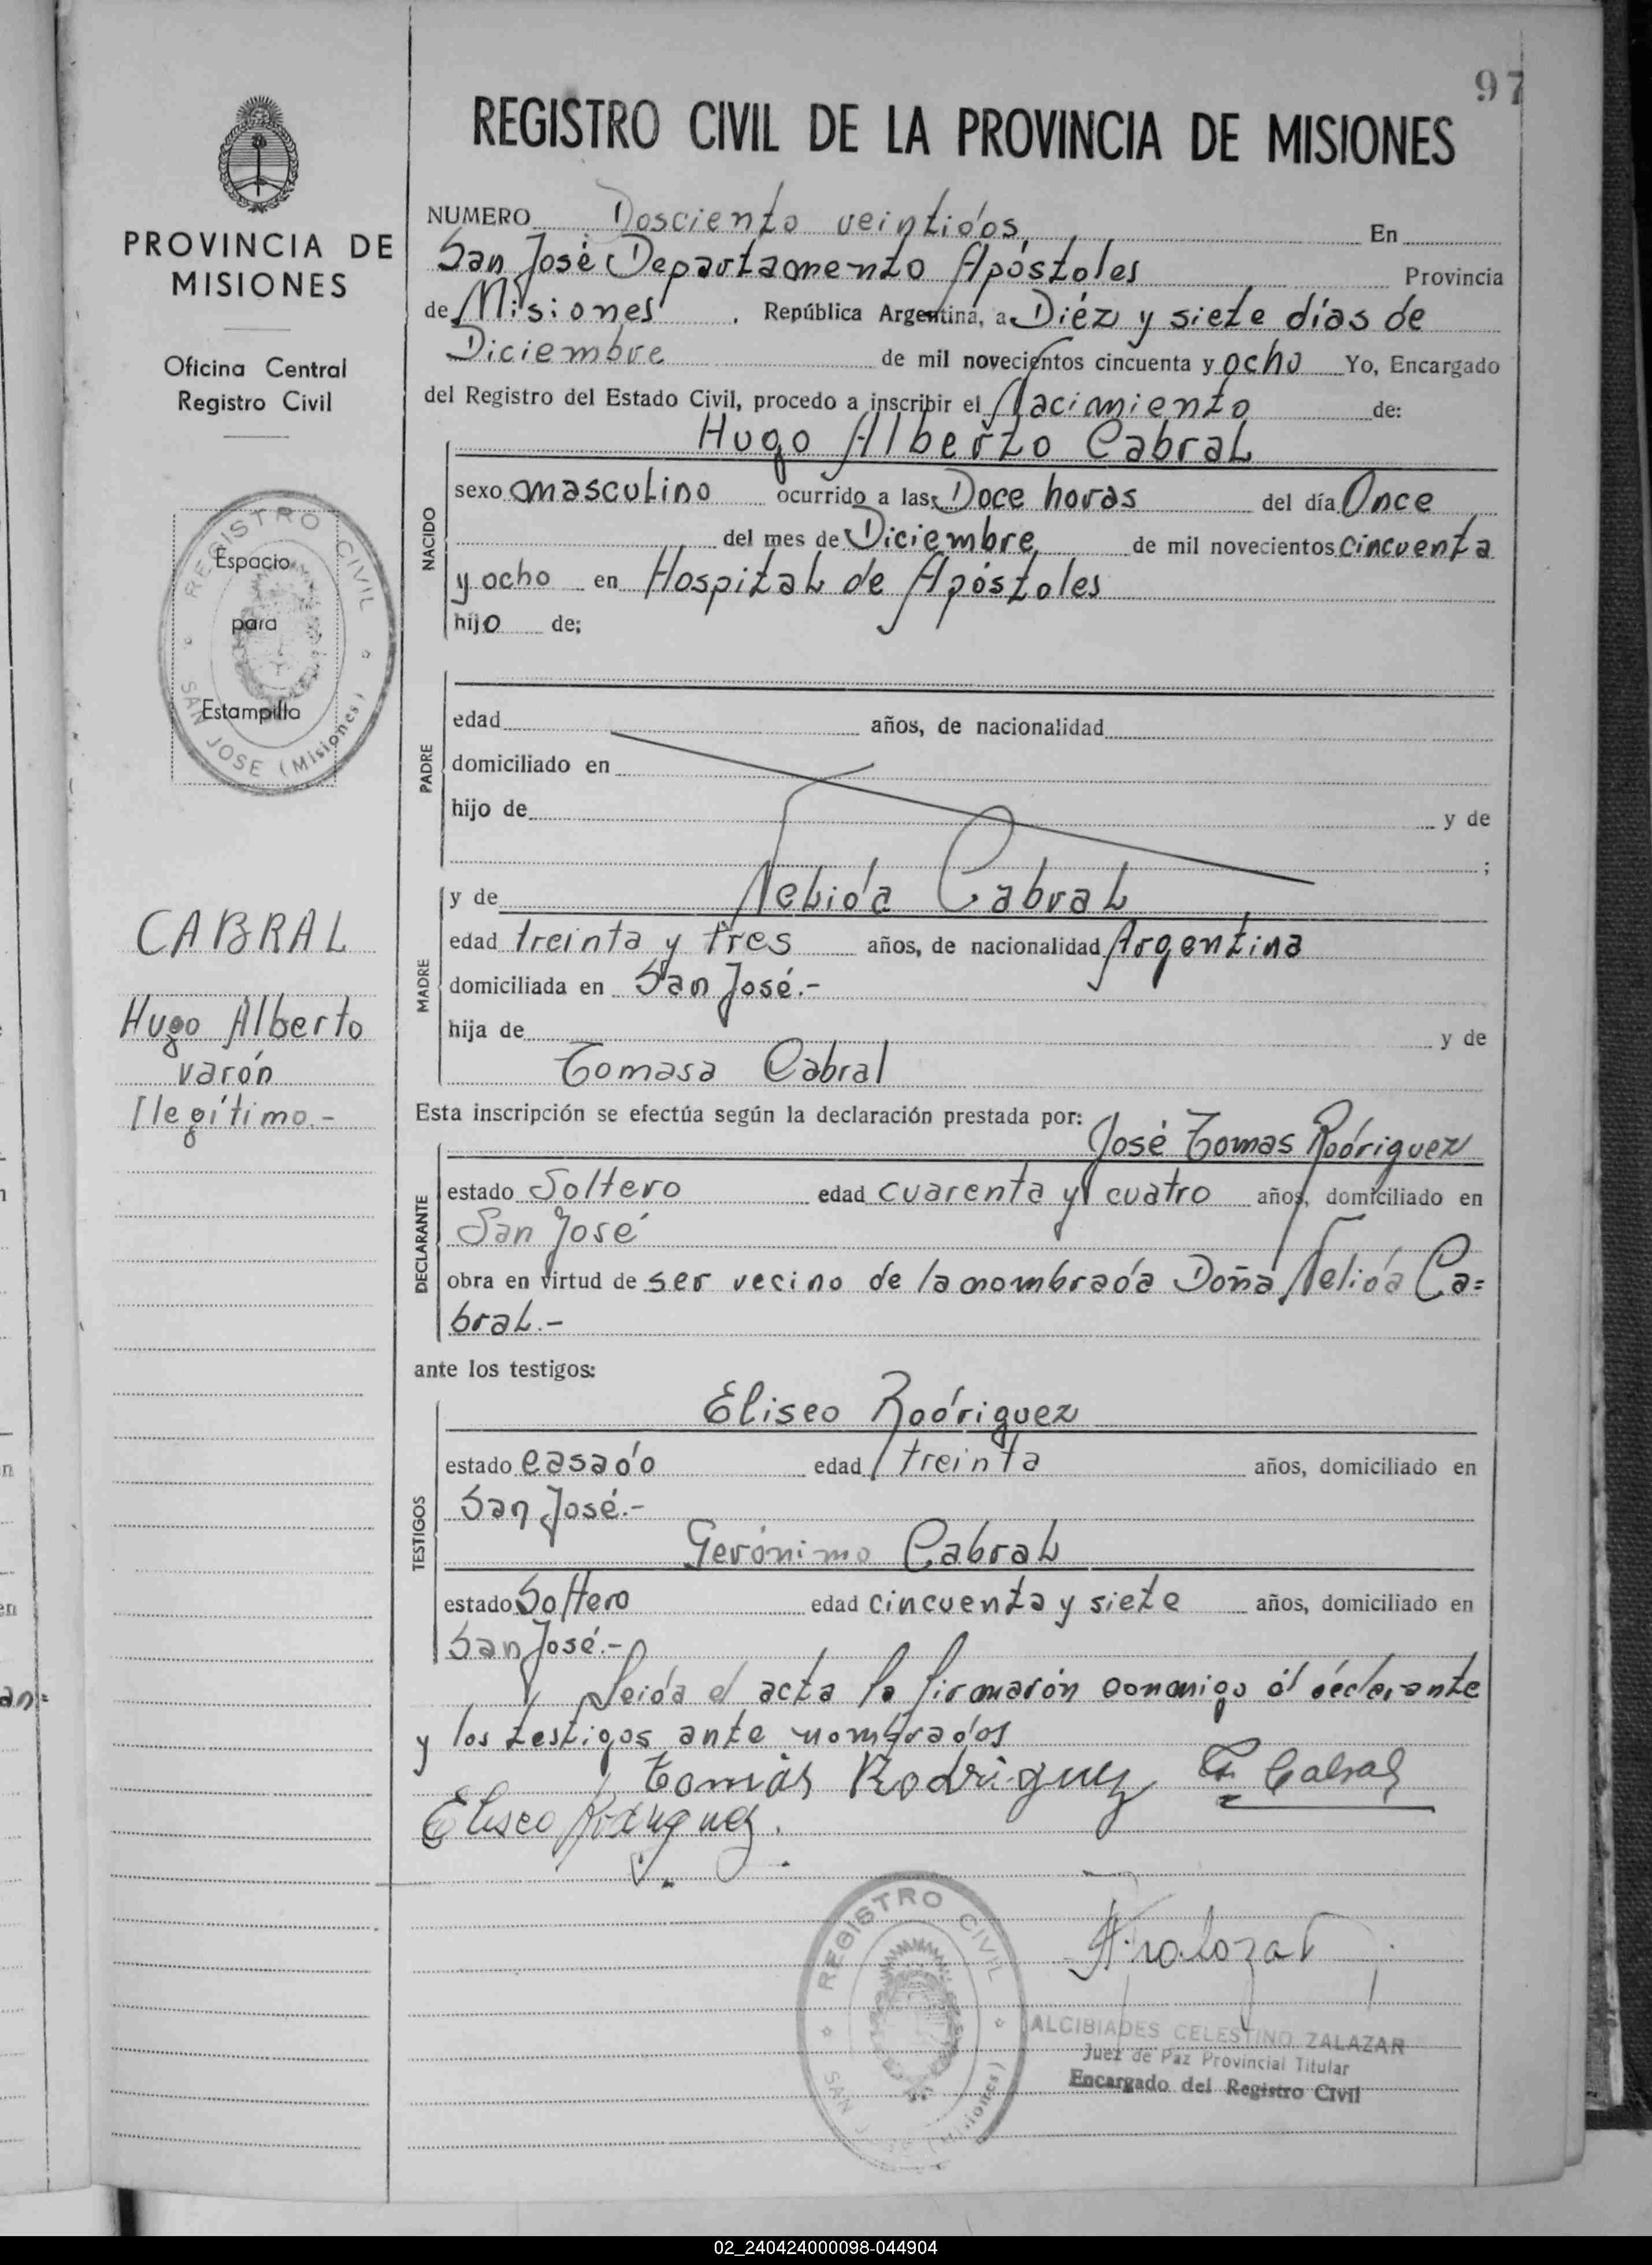 97
REGISTRO CIVIL DE LA PROVINCIA DE MISIONES
PROVINCIA DE
MISIONES
Oficina Central
Registro Civil
REGISTRO CIVIL
SAN JOSE (Misiones)
Espacio
para
Estampilla
CABRAL
Hugo Alberto
varón
Ilegítimo.-
NUMERO Dosciento veintidos, En
San José Departamento Apóstoles Provincia
de Misiones, República Argentina, a Diéz y siete días de
Diciembre de mil novecientos cincuenta y ocho Yo, Encargado
del Registro del Estado Civil, procedo a inscribir el Nacimiento de:
Hugo Alberto Cabral
NACIDO
sexo masculino ocurrido a las Doce horas del día Once
del mes de Diciembre, de mil novecientos cincuenta
y ocho en Hospital de Apóstoles
hijo de;
PADRE
edad años, de nacionalidad
domiciliado en
hijo de y de
;
MADRE
y de Nelida Cabral
edad treinta y tres años, de nacionalidad Argentina
domiciliada en San José.-
hija de y de
Tomasa Cabral
Esta inscripción se efectúa según la declaración prestada por:
José Tomas Rodriguez
DECLARANTE
estado Soltero edad cuarenta y cuatro años, domiciliado en
San José
obra en virtud de ser vecino de la nombrada Doña Nelida Ca=
bral.-
ante los testigos:
TESTIGOS
Eliseo Rodriguez
estado casado edad treinta años, domiciliado en
San José.-
Gerónimo Cabral
estado Soltero edad cincuenta y siete años, domiciliado en
San José.-
Leida el acta la firmarón conmigo él declarante
y los testigos ante nombrados
Tomás Rodriguez G. Cabral
Eliseo Rodriguez.
REGISTRO CIVIL
SAN JOSE (Misiones)
ALCIBIADES CELESTINO ZALAZAR
Juez de Paz Provincial Titular
Encargado del Registro Civil
02_240424000098-044904